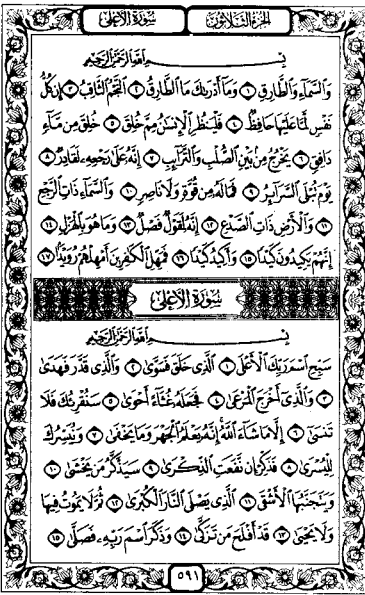 سُورَةُ الأَعْلَىٰ
الجُزْءُ الثَّلَاثُونَ
بِسْمِ اللَّهِ الرَّحْمَٰنِ الرَّحِيمِ
وَالسَّمَاءِ وَالطَّارِقِ ١ وَمَا أَدْرَىٰكَ مَا الطَّارِقُ ٢ النَّجْمُ الثَّاقِبُ ٣ إِن كُلُّ
نَفْسٍ لَّمَّا عَلَيْهَا حَافِظٌ ٤ فَلْيَنظُرِ الْإِنسَٰنُ مِمَّ خُلِقَ ٥ خُلِقَ مِن مَّاءٍ
دَافِقٍ ٦ يَخْرُجُ مِن بَيْنِ الصُّلْبِ وَالتَّرَائِبِ ٧ إِنَّهُ عَلَىٰ رَجْعِهِ لَقَادِرٌ ٨
يَوْمَ تُبْلَى السَّرَائِرُ ٩ فَمَا لَهُ مِن قُوَّةٍ وَلَا نَاصِرٍ ١٠ وَالسَّمَاءِ ذَاتِ الرَّجْعِ
١١ وَالْأَرْضِ ذَاتِ الصَّدْعِ ١٢ إِنَّهُ لَقَوْلٌ فَصْلٌ ١٣ وَمَا هُوَ بِالْهَزْلِ ١٤
إِنَّهُمْ يَكِيدُونَ كَيْدًا ١٥ وَأَكِيدُ كَيْدًا ١٦ فَمَهِّلِ الْكَٰفِرِينَ أَمْهِلْهُمْ رُوَيْدًا ١٧
سُورَةُ الأَعْلَىٰ
بِسْمِ اللَّهِ الرَّحْمَٰنِ الرَّحِيمِ
سَبِّحِ اسْمَ رَبِّكَ الْأَعْلَى ١ الَّذِي خَلَقَ فَسَوَّىٰ ٢ وَالَّذِي قَدَّرَ فَهَدَىٰ
٣ وَالَّذِي أَخْرَجَ الْمَرْعَىٰ ٤ فَجَعَلَهُ غُثَاءً أَحْوَىٰ ٥ سَنُقْرِئُكَ فَلَا
تَنسَىٰ ٦ إِلَّا مَا شَاءَ اللَّهُ إِنَّهُ يَعْلَمُ الْجَهْرَ وَمَا يَخْفَىٰ ٧ وَنُيَسِّرُكَ
لِلْيُسْرَىٰ ٨ فَذَكِّرْ إِن نَّفَعَتِ الذِّكْرَىٰ ٩ سَيَذَّكَّرُ مَن يَخْشَىٰ ١٠
وَيَتَجَنَّبُهَا الْأَشْقَى ١١ الَّذِي يَصْلَى النَّارَ الْكُبْرَىٰ ١٢ ثُمَّ لَا يَمُوتُ فِيهَا
وَلَا يَحْيَىٰ ١٣ قَدْ أَفْلَحَ مَن تَزَكَّىٰ ١٤ وَذَكَرَ اسْمَ رَبِّهِ فَصَلَّىٰ ١٥
٥٩١